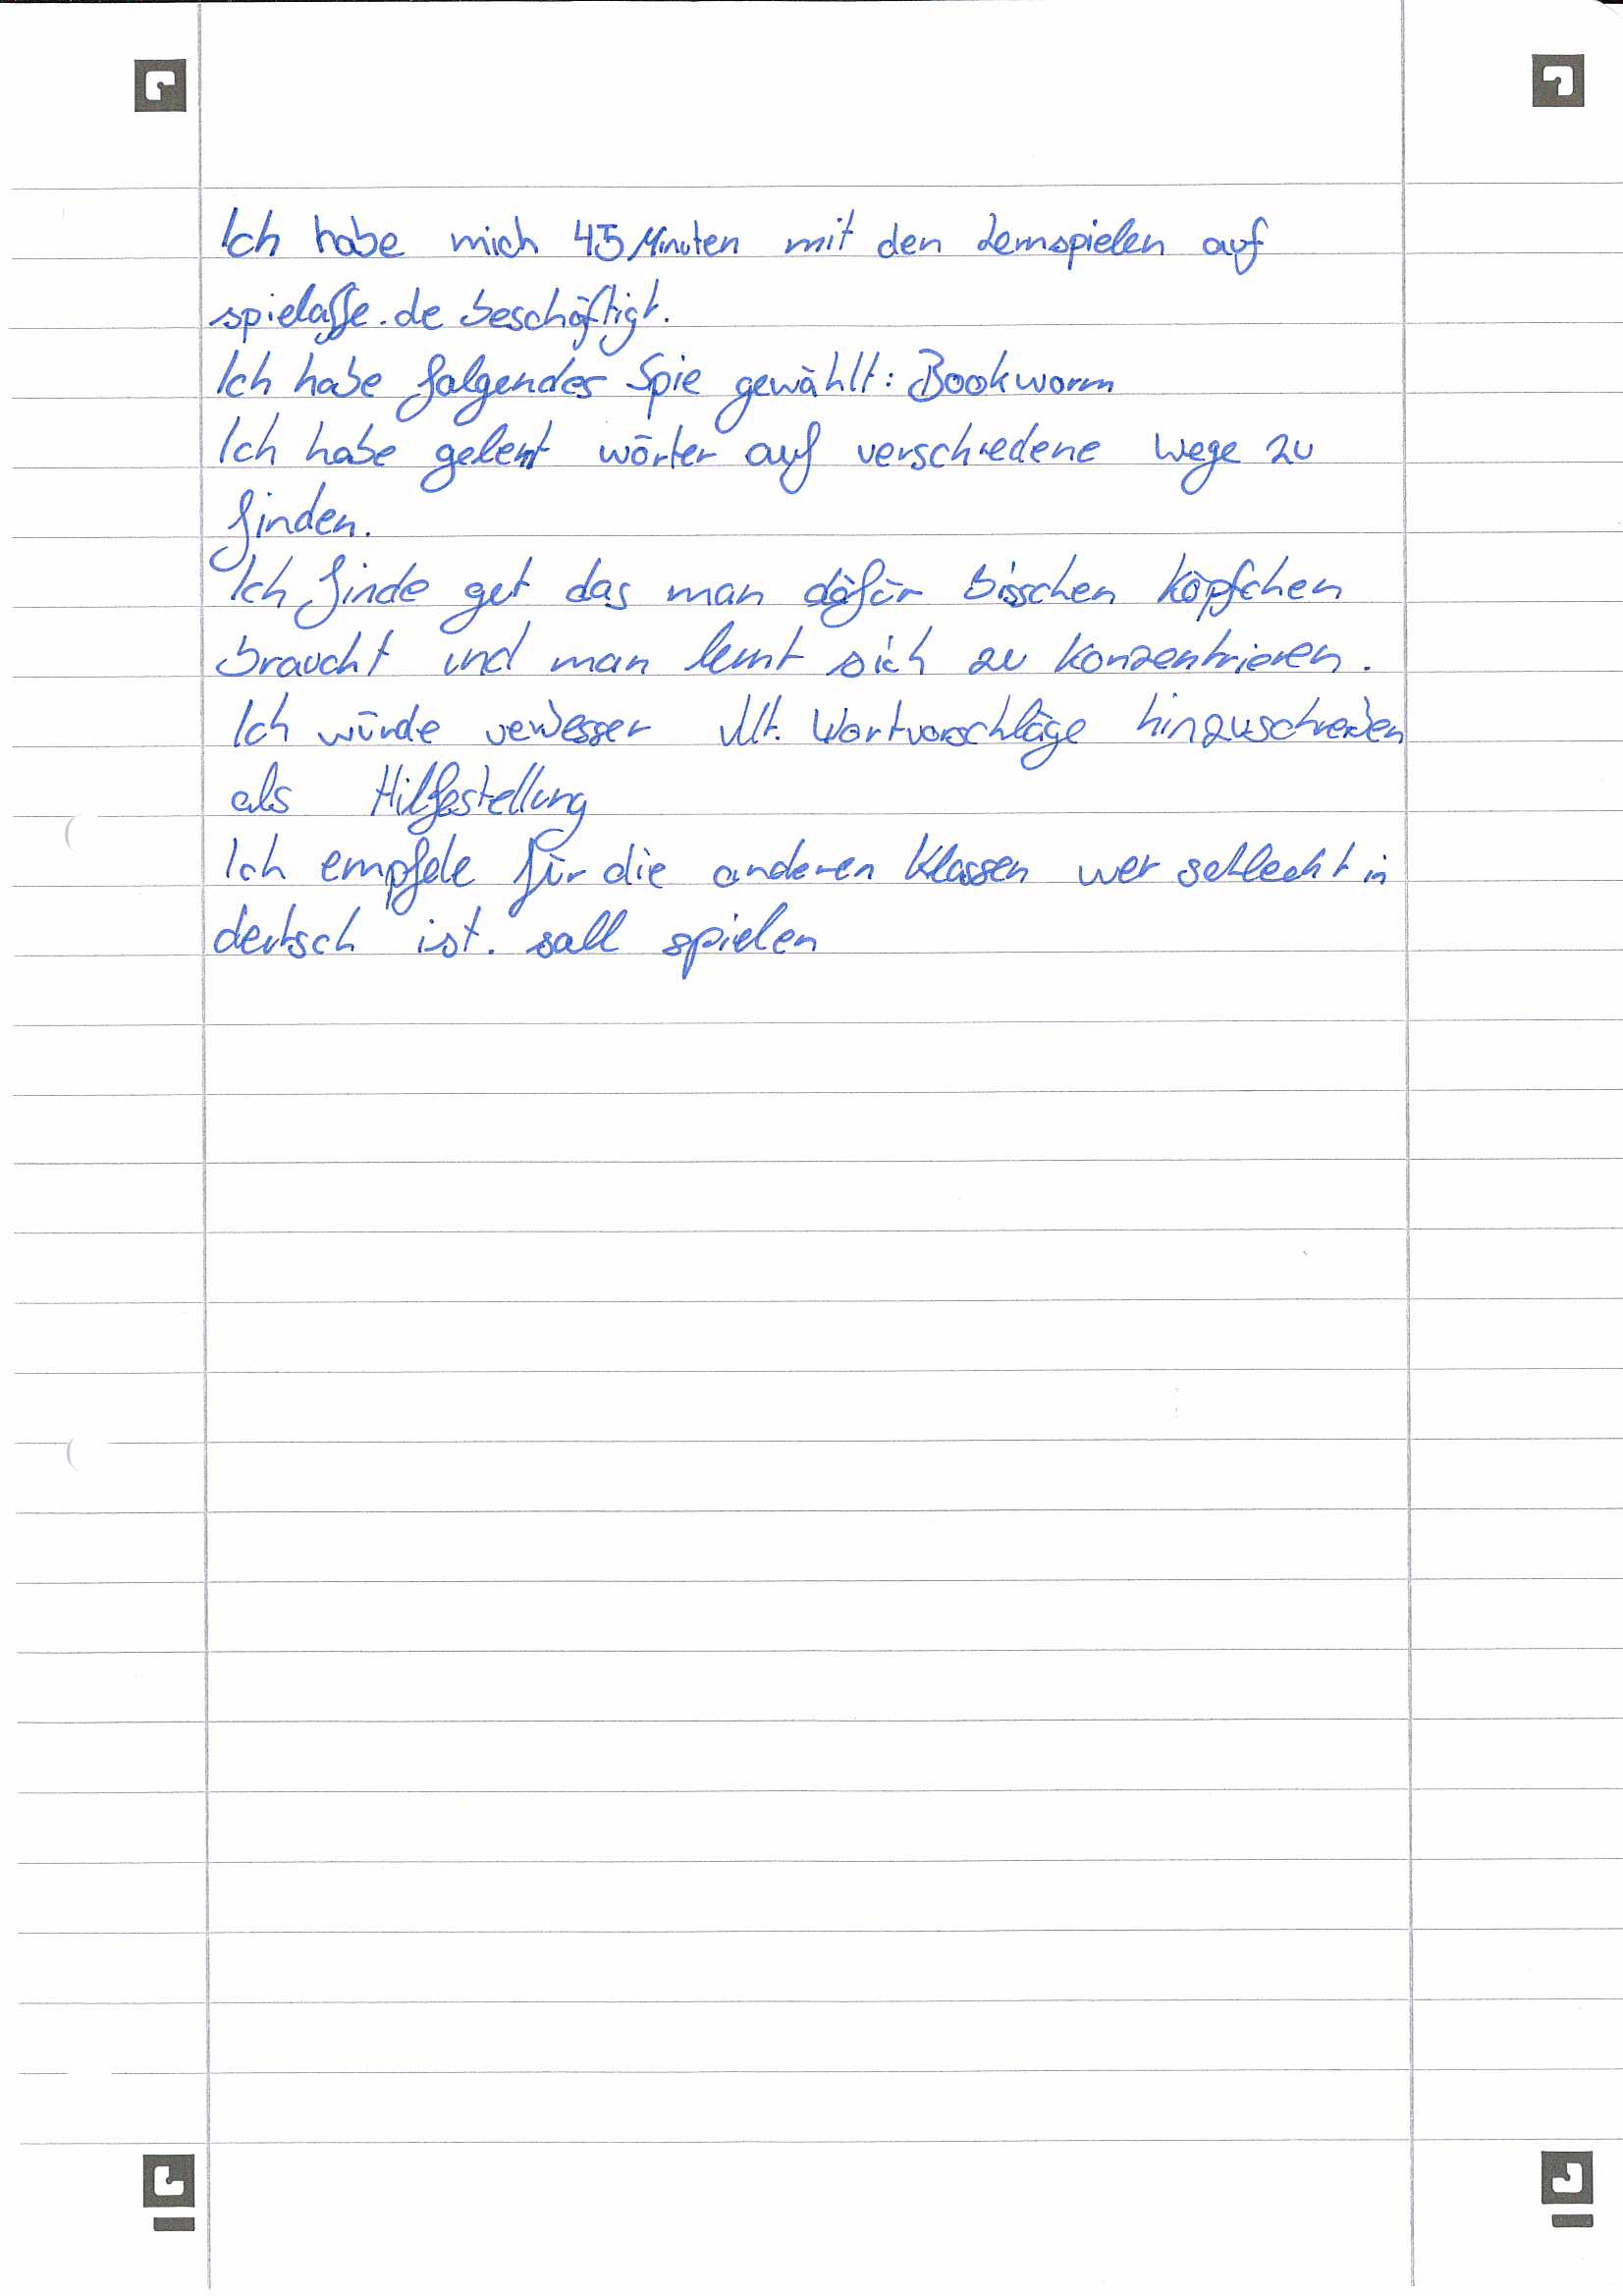 Ich habe mich 45 Minuten mit den Lernspielen auf
spielaffe.de beschäftigt.
Ich habe folgendes Spie gewählt: Bookworm
Ich habe gelernt wörter auf verschiedene Wege zu
finden.
Ich finde gut das man dafür bisschen Köpfchen
braucht und man lernt sich zu konzentrieren.
Ich würde verbesser Vllt. Wortvorschläge hinzuschreiben
als Hilfestellung
Ich empfele für die anderen Klassen wer schlecht in
deutsch ist. soll spielen